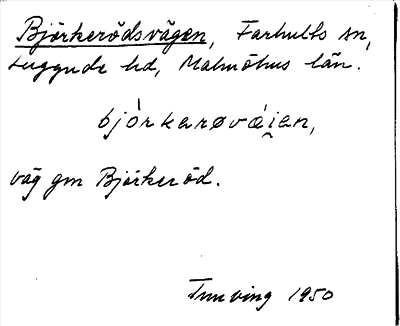 Björkerödsvägen, Farhults sn,
Luggude hd, Malmöhus län.
bjórkerøvæ̀i̯en,
väg gm Björkeröd.
Tunving 1950